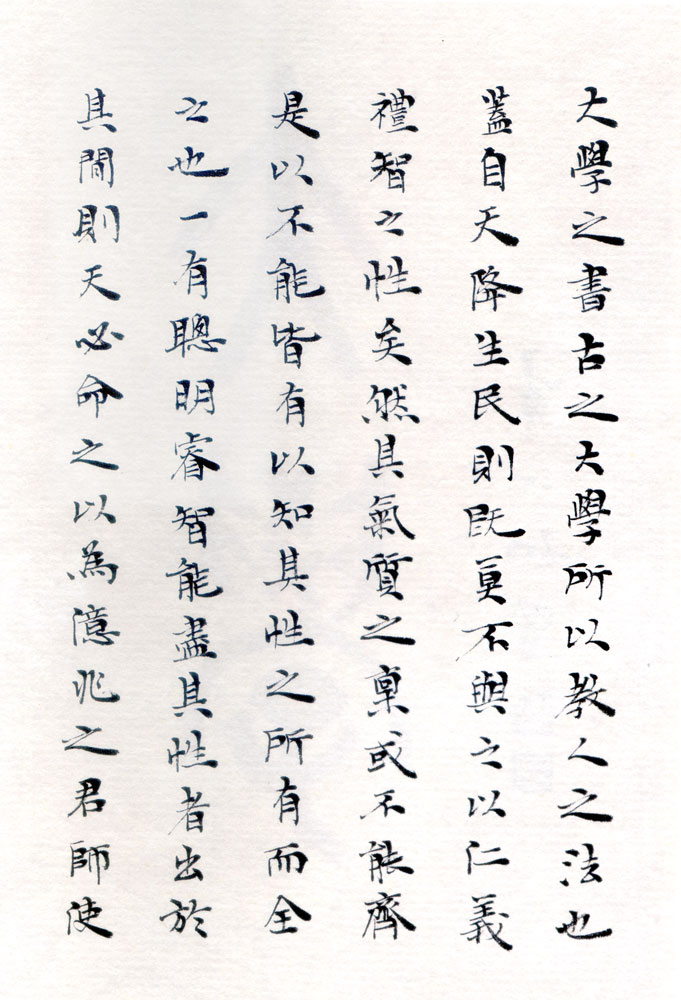 大學之書古之大學所以教人之法也
蓋自天降生民則既莫不與之以仁義
禮智之性矣然其氣質之稟或不能齊
是以不能皆有以知其性之所有而全
之也一有聰明睿智能盡其性者出於
其間則天必命之以為億兆之君師使